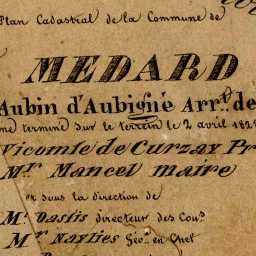 Plan Cadastral de la Commune de
MEDARD
Aubin d'Aubigné Arr.t de
terminé sur le terrein le 2 avril 182
Vicomte de Curzay Pr
Mr. Mancel maire
sous la direction de
Mr. Dastis directeur des Con.s
Mr Naylies Géo. en Chef